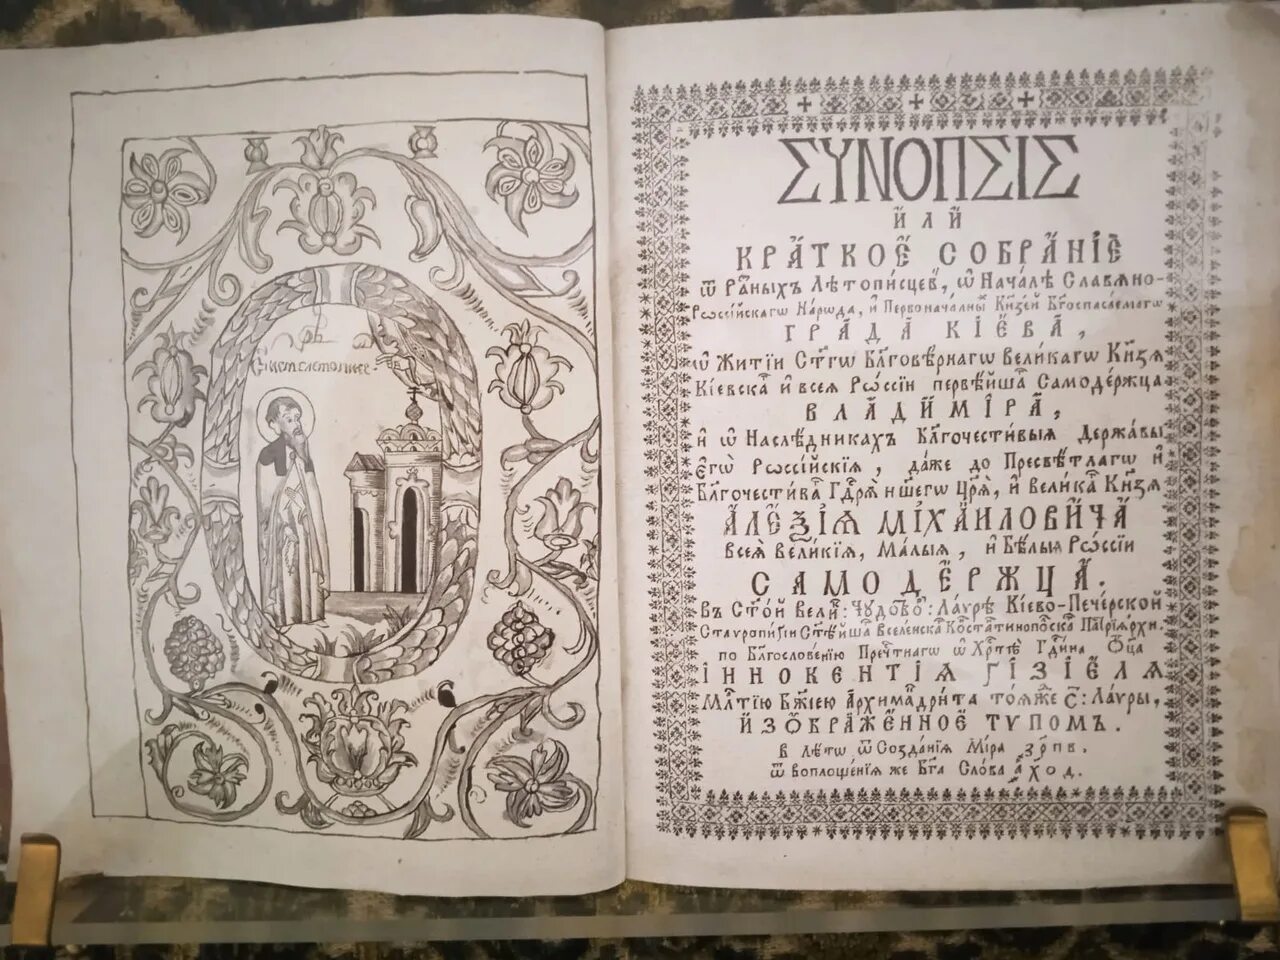 прⷣб
Симеѡн столпнк
ΣΥΝΟΠΣΙΣ
И҆ЛИ҆
КРА́ТКОЕ СОБРА́НЇЕ
ѿ Ра́зныхъ Лѣтопи́сцев, ѡ҆ Нача́лѣ Славѧно-
Рѡссі́йскагѡ Наро́да, и҆ Первонача́лны Кнз҃ей Бг҃оспасаемагѡ
ГРА́ДА КІ́ЕВА,
ѡ҆ Житїи Ст҃гѡ Блг҃овѣ́рнагѡ вели́кагѡ Кнз҃ѧ
Кі́евска и҆ всеѧ Рѡссїи первѣ́йша Самоде́ржца
ВЛАДИ́МІРА,
и҆ ѡ҆ Наслѣ́дникахъ Блг҃очести́выѧ Держа́вы
Е҆гѡ̀ Рѡссі́йскїѧ, да́же до Пресвѣ́тлагѡ и҆
Блг҃очести́ва Гд҃рѧ нш҃егѡ Цр҃ѧ̀, и҆ вели́ка Кнз҃ѧ
А҆ЛЕѮІѦ МІХА́ИЛОВИЧА
всеѧ̀ вели́кїѧ, Ма́лыѧ, и҆ Бѣ́лыѧ Рѡссїи
САМОДЕ́РЖЦА.
въ Ст҃о́й вели: Чꙋдово: Ла́ѵрѣ Кі́ево-Пече́рской
Ставропигїи Ст҃ѣ́йша Вселе́нска Костѧтинопо́ска Патрїа́рхи.
по Блг҃ослове́нїю Пречⷭ҇тнагѡ ѡ҆ Хрⷭ҇тѣ̀ Гд҃и́на Ѻ҆ц҃а
І҆ННОКЕ́НТІѦ ГІЗІ́ЕЛѦ
Млⷭ҇тїю Бж҃їею Архимандри́та то́ѧже С: Ла́ѵры,
И҆ЗО҆БРАЖЕ́ННОЕ ТУПОМЪ.
в лѣ́то ѿ Созда́нїѧ Мі́ра ҂зрпв.
ѿ воплоще́нїѧ же Бг҃а Сло́ва ҂аход.